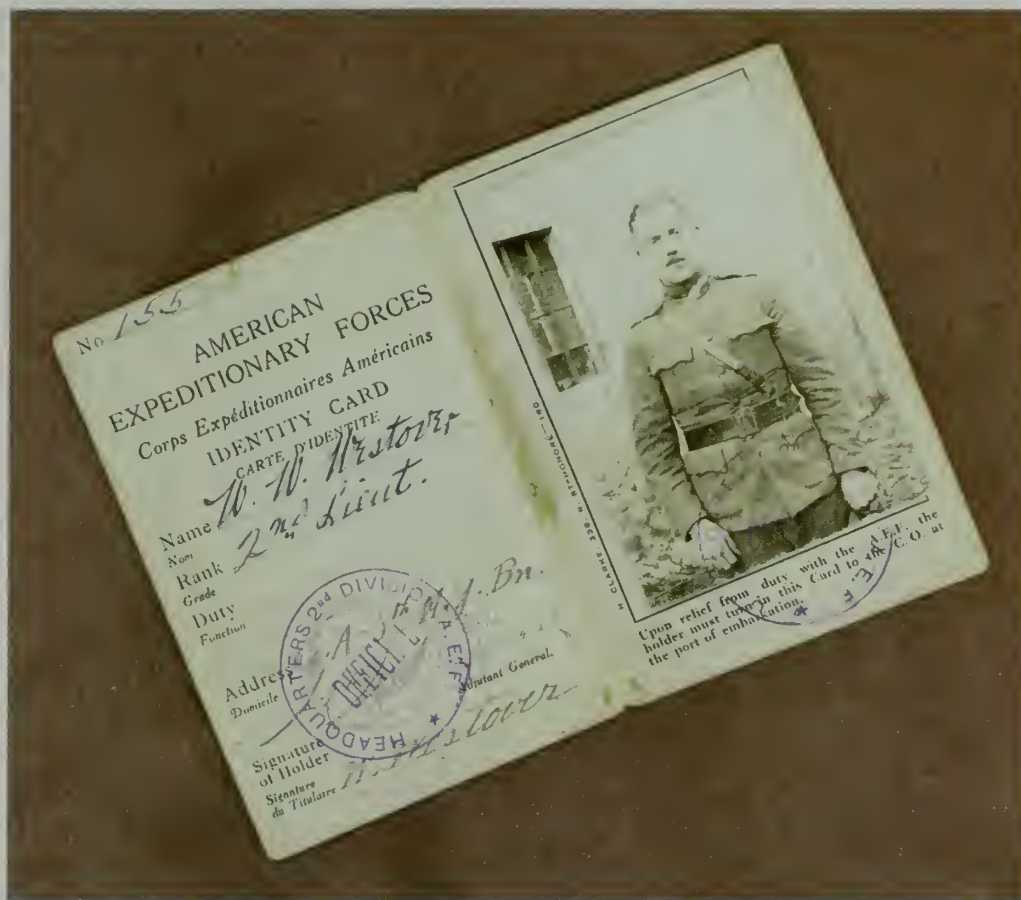 No 155
AMERICAN
EXPEDITIONARY FORCES
Corps Expéditionnaires Américains
IDENTITY CARD
CARTE D'IDENTITÉ
Name W. W.
Nom
Rank 2nd Lieut.
Grade
Duty
Function
Address Bn.
Domicile
Adjutant General.
Signature
of Holder
Signature
du Titulaire
HEADQUARTERS 2nd DIVISION A.E.F.
H CLARKE. ST-HONORÉ
Upon relief from duty with the A.E.F. the
holder must turn in this Card to the C.O. at
the port of embarkation.
E. F.